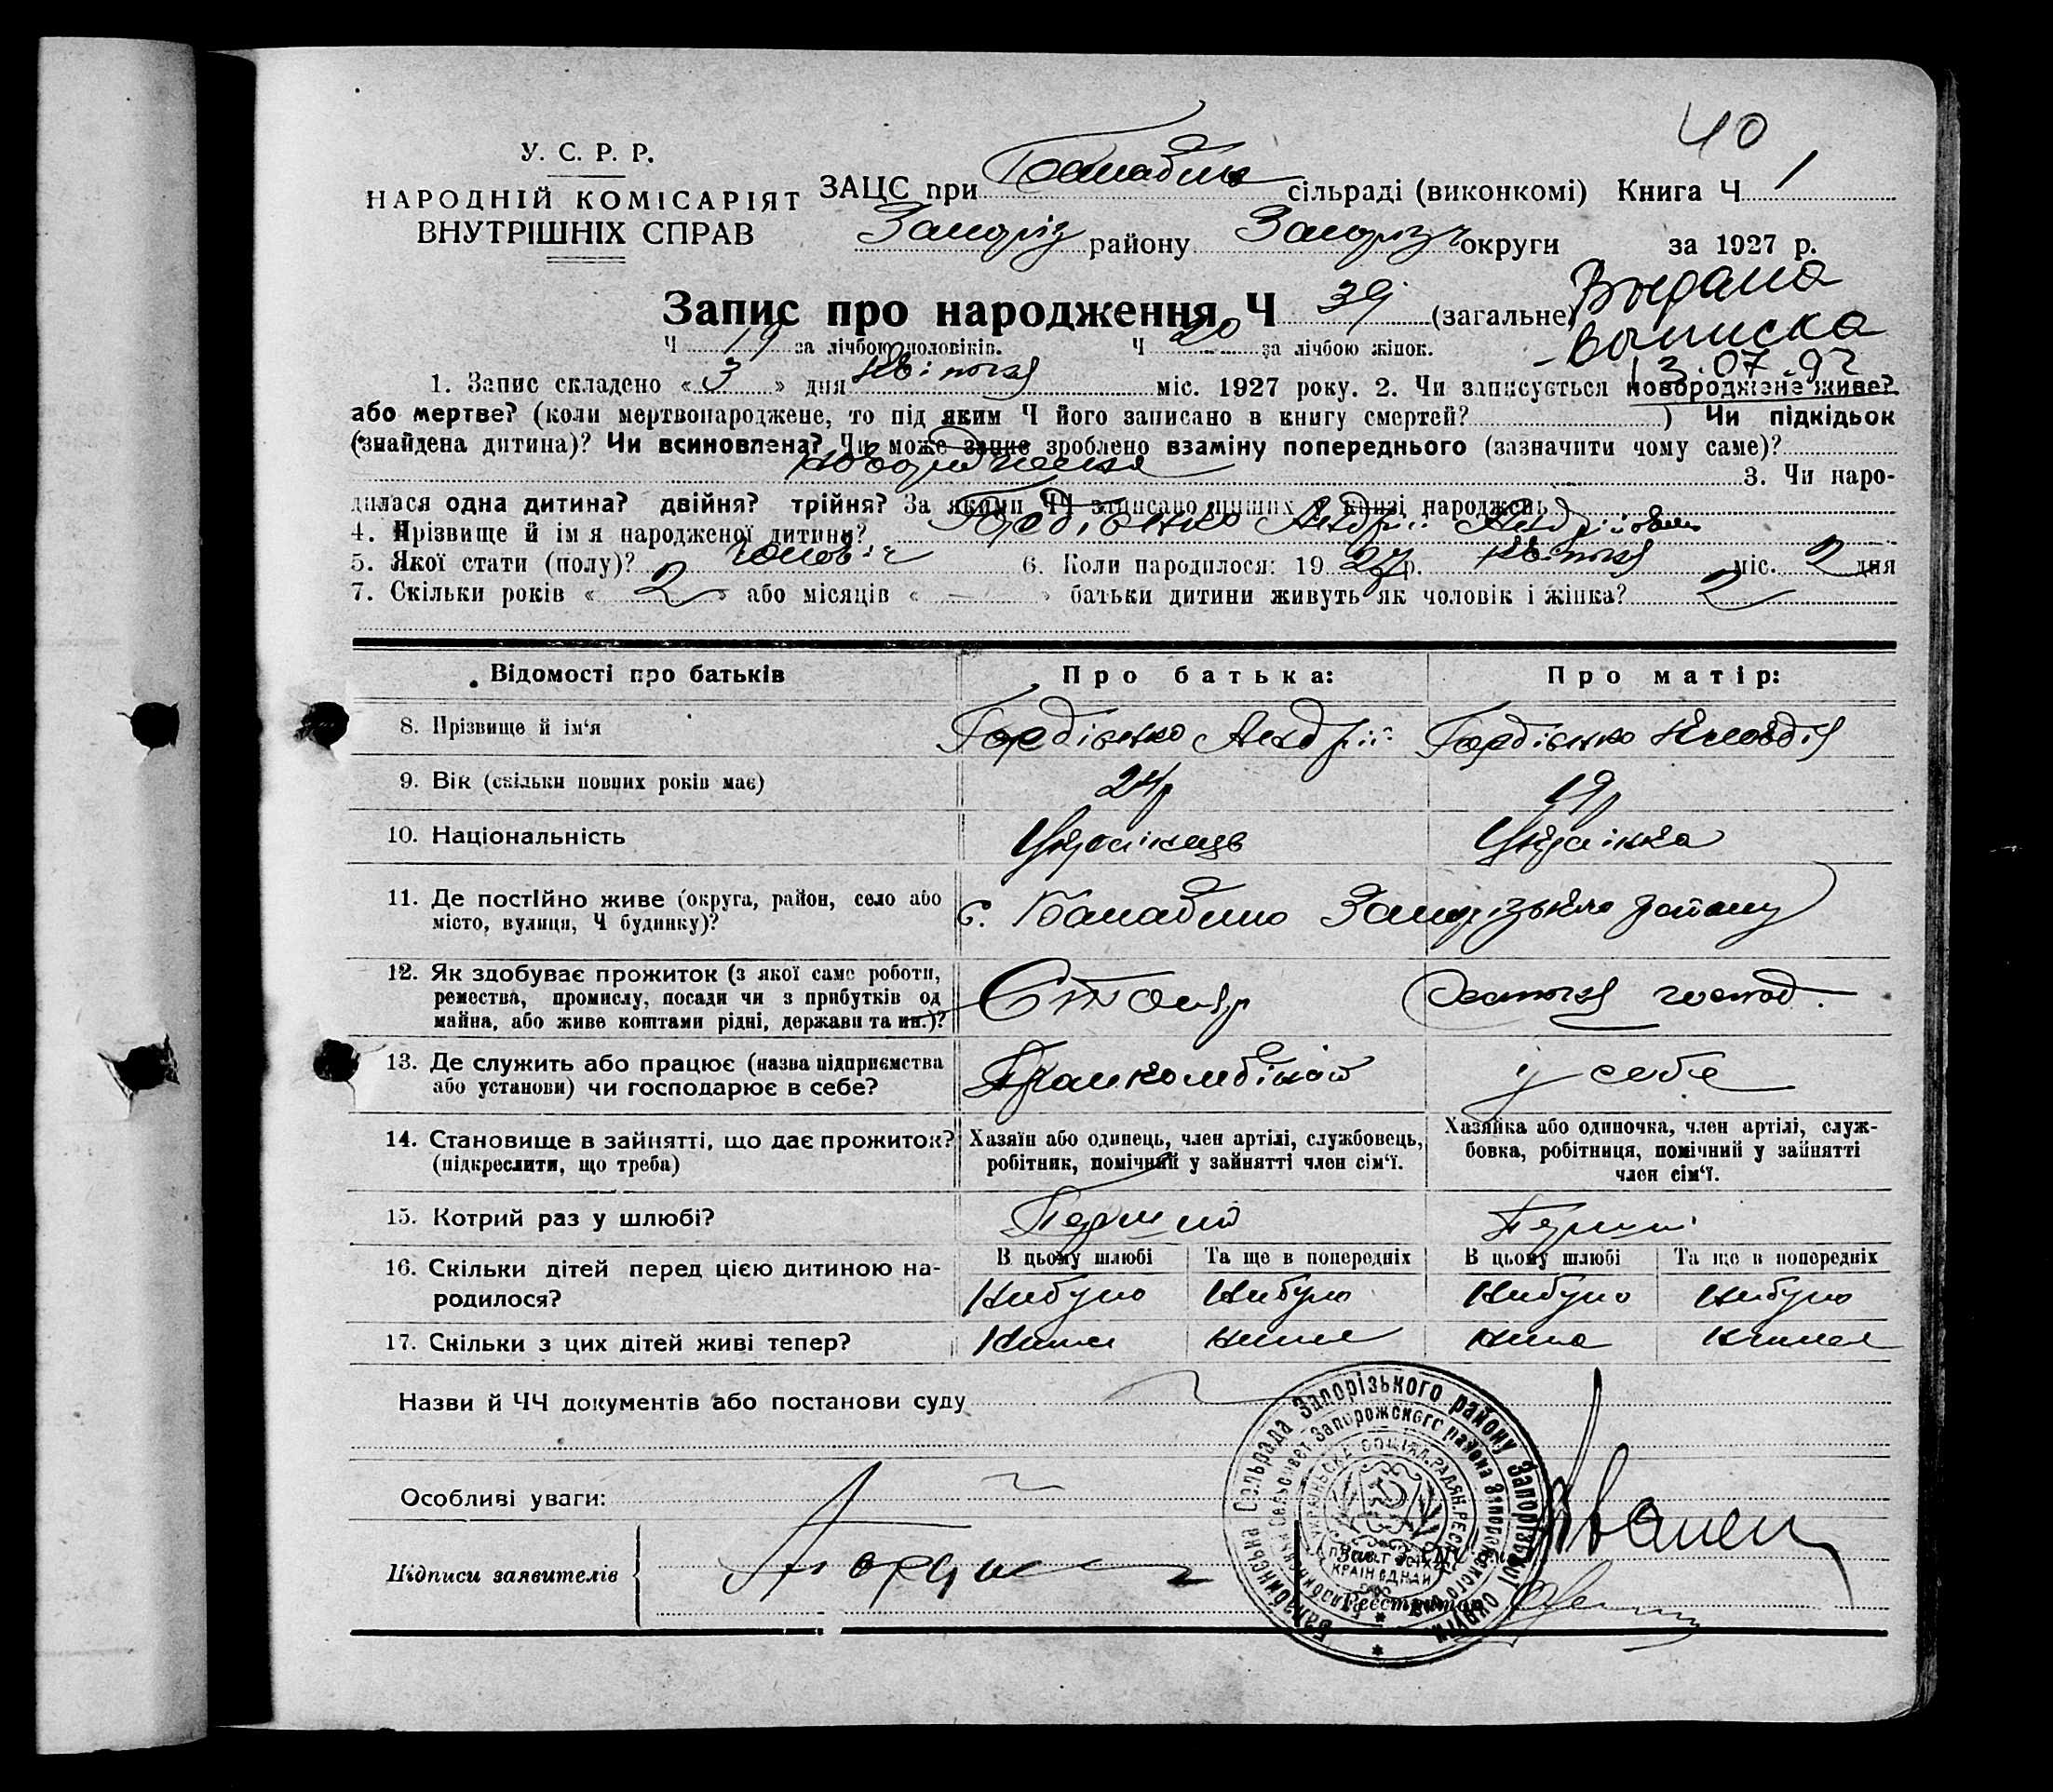 40
У. С. Р. Р.
НАРОДНІЙ КОМІСАРІЯТ
ВНУТРІШНІХ СПРАВ
ЗАЦС при Балабино сільраді (виконкомі) Книга Ч 1
Запоріз району Запоріз округи за 1927 р.
Запис про народження Ч 39 (загальне)
Выдана
выписка
13.07.92
Ч 19 за лічбою чоловіків. Ч 20 за лічбою жінок.
1. Запис складено « 3 » дня Квітня міс. 1927 року. 2. Чи записується новороджене живе?
або мертве? (коли мертвонароджене, то під яким Ч його записано в книгу смертей? ) Чи підкідьок
(знайдена дитина)? Чи всиновлена? Чи може запис зроблено взаміну попереднього (зазначити чому саме)?
3. Чи наро-
дилася одна дитина? двійня? трійня? За якими ЧЧ записано інших у книзі народжень
4. Прізвище й ім'я народженої дитини? Гордієнко Андрій Андрійович
5. Якої стати (полу)? чолов іч 6. Коли народилося: 1927р. Квітня міс. 2 дня
7. Скільки років « 2 » або місяців « — » батьки дитини живуть як чоловік і жінка? 2
Відомості про батьків Про батька: Про матір:
8. Прізвище й ім'я Гордієнко Андрій Гордієнко Клавдія
9. Вік (скільки повних років має) 24р 19р
10. Національність Українець Українка
11. Де постійно живе (округа, район, село або
місто, вулиця, Ч будинку)? с. Балабино Запорізького району
12. Як здобуває прожиток (з якої саме роботи,
ремества, промислу, посади чи з прибутків од
майна, або живе коштами рідні, держави та ин.)? Столяр господ.
13. Де служить або працює (назва підприємства
або установи) чи господарює в себе? у себе
14. Становище в зайнятті, що дає прожиток?
(підкреслити, що треба)
Хазяїн або одинець, член артілі, службовець,
робітник, помічний у зайнятті член сім'ї.
Хазяйка або одиночка, член артілі, служ-
бовка, робітниця, помічний у зайнятті
член сім'ї.
15. Котрий раз у шлюбі? Перший Перший
В цьому шлюбі Та ще в попередніх В цьому шлюбі Та ще в попередніх
16. Скільки дітей перед цією дитиною на-
родилося? Небуло Небуло Небуло Небуло
17. Скільки з цих дітей живі тепер?
Назви й ЧЧ документів або постанови суду
Особливі уваги:
Підписи заявителів
Реєстратор
Балабинська Сельрада Запорізького району Запорізької округи
УКРАЇНСЬКА СОЦІЯЛ. РАДЯН. РЕСП.